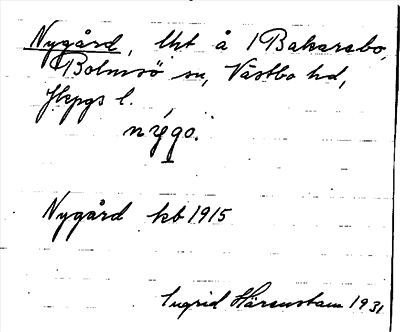 Nygård, lht å 1 Bakarebo,
Bolmsö sn, Västbo hd,
Jkpgs l.
Nygård kb 1915
Ingrid Härenstam 1931